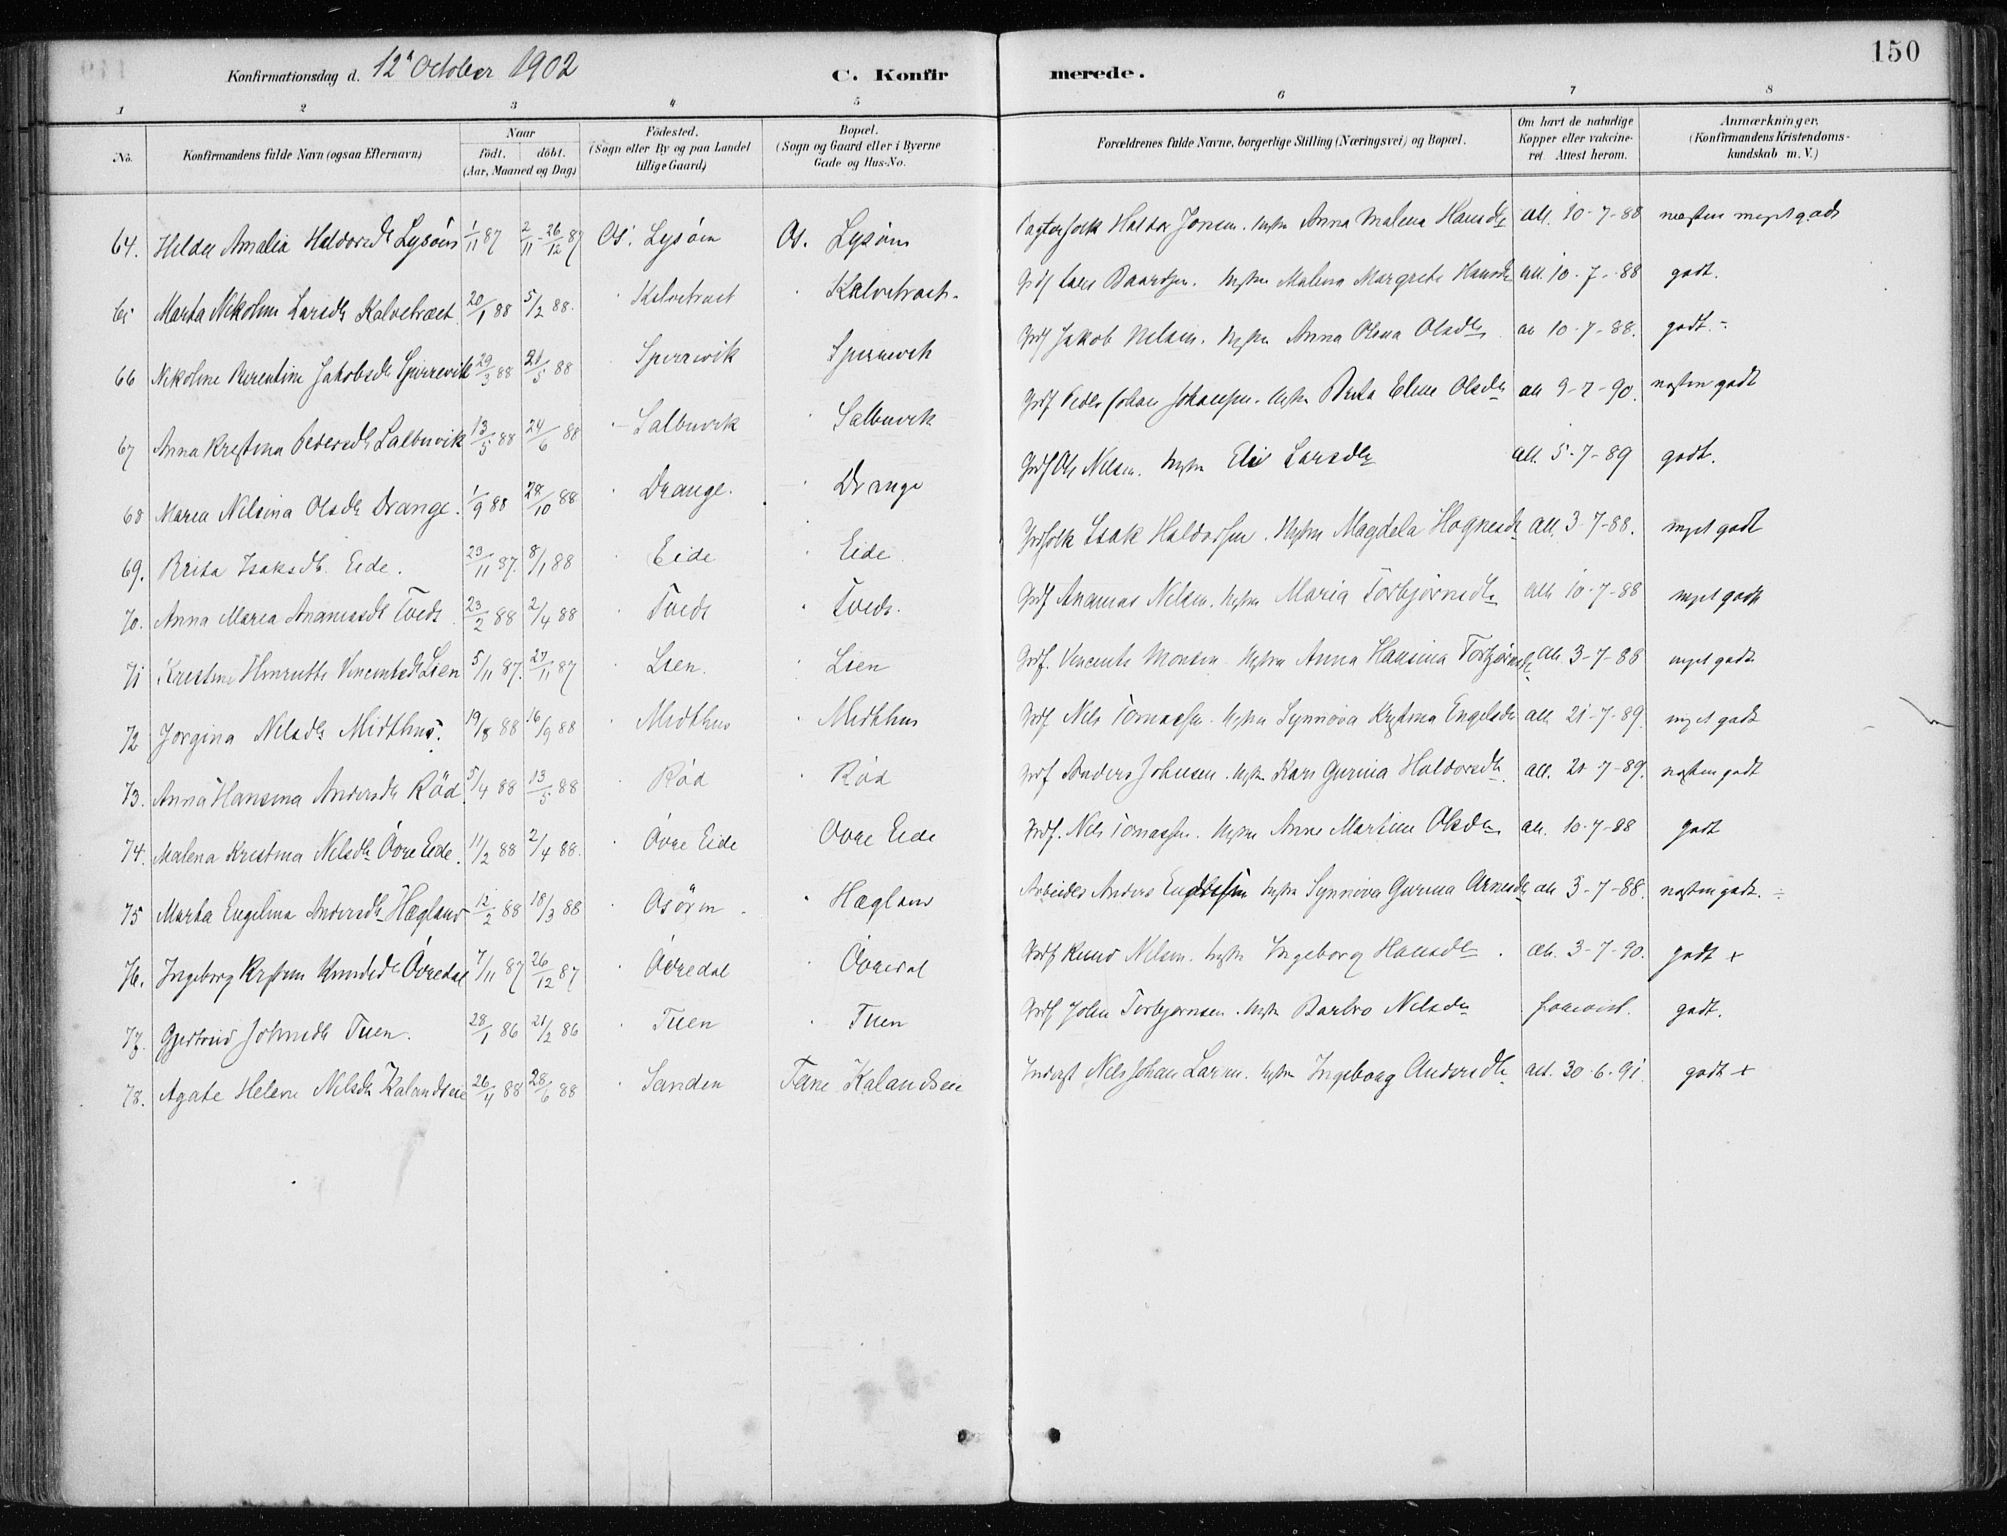 150
Konfirmationsdag d. 12' October 1902 C. Konfirmerede.
1 2 3 4 5 6 7 8
No. Konfirmandens fulde Navn (ogsaa Efternavn) Naar födt. döbt. (Aar, Maaned og Dag) Födested. (Sogn eller By og paa Landet tillige Gaard) Bopæl. (Sogn og Gaard eller i Byerne Gade og Hus-No. Forældrenes fulde Navne, borgerlige Stilling (Næringsvei) og Bopæl. Om havt de naturlige Kopper eller vakcineret Attest herom. Anmærkninger, (Konfirmandens Kristendomskundskab m. V.)
64. Hilda Amalia Haldorsdtr Lysöen 1/11 87 2/11 - 26/12 87 Os. Lysöen Os. Lysöen Haldor Jonsen. Hustru Anna Malena Hansdtr att. 10-7-88 næsten meget godt
65 Marta Nikoline Larsdtr Kalvetræet 20/1 88 5/2 88. Kalvetræet Kalvetræet. Grdf Lars Baardsen. Hustru Malena Margrete Hansdtr att. 10-7-88 godt.
66 Nikoline Berentine Jakobsdtr Sperrevik 29/3 88 21/5 88 Sperrevik Sperrevik Grdf Jakob Nilsen. Hustru Anna Olena Olsdtr att 10-7-88. godt. -
67 Anna Kristina Pedersdtr Salbuvik 13/5 88 24/6 88 Salbuvik Salbuvik Grdf Peder Johan Johansen. Hustru Brita Elene Olsdtr att 9-7-90. næsten godt
68 Maria Nilsina Olsdtr Drange. 1/9 88 28/10 88 Drange. Drange Grdf Ole Nilsen. Hustru Eli Larsdtr att. 5-7-89 godt.
69. Brita Isaksdtr. Eide. 23/11 87. 8/1 88 Eide Eide Grdfolk Isak Haldorsen. Hustru Magdela Hognesdtr att. 3-7-88. meget godt
70. Anna Maria Ananiasdtr Tveds 23/2 88 2/4 88 Tveds Tveds. Grdf Ananias Nilsen. Hustru Maria Torbjørnsdtr att. 10-7-88 meget godt
71 Kristine Henriette Vincentsdtr Lien 5/11 87. 27/11 87 Lien. Lien Grdf. Vincents Monsen Hustru Anna Hansina Torbjørnsdtr att. 3-7-88 meget godt
72 Jorgina Nilsdtr Midthus. 19/8 88 16/9 88 Midthus Midthus Grdf. Nils Tomassen. Hustru Synnöva Kristina Engelsdtr att. 21-7-89. meget godt
73. Anna Hansina Andersdtr Röd. 5/4 88 13/5 88 Röd Röd Grdf Anders Johnsen. Hustru Kari Gurina Haldorsdtr. att. 21-7-89. næsten godt
74. Malena Kristina Nilsdtr Övre Eide. 11/2 88 2/4 88. Övre Eide Ovre Eide Grdf. Nils Tomassen. Hustru Anne Martine Olsdtr att. 10-7-88 godt
75 Marta Engelina Andersdtr Hægland 12/2 88 18/3 88 Osören. Hægland Arbeider Anders Hustru Synnöva Gurina Arnesdtr att 3-7-88. næsten godt. -
76. Ingeborg Kristine Knudsdtr Övredal 7/11 87 26/12 87 Övredal Övredal Grdf Knud Nilsen. Hustru Ingeborg Hansdtr. att. 3-7-90. godt +
77. Gjertrud Johnsdtr Tuen. 28/1 86 21/2 86 Tuen Tuen Grdf John Torbjørnsen. Hustru Barbro Nilsdtr forevist. godt.
78. Agate Helene Nilsdtr Kalandseie 26/4 88 28/6 88 Sanden Fane Kalandseie Inderst Nils Johan Larsen. Hustru Ingeborg Andersdtr att. 30-6-91. godt +